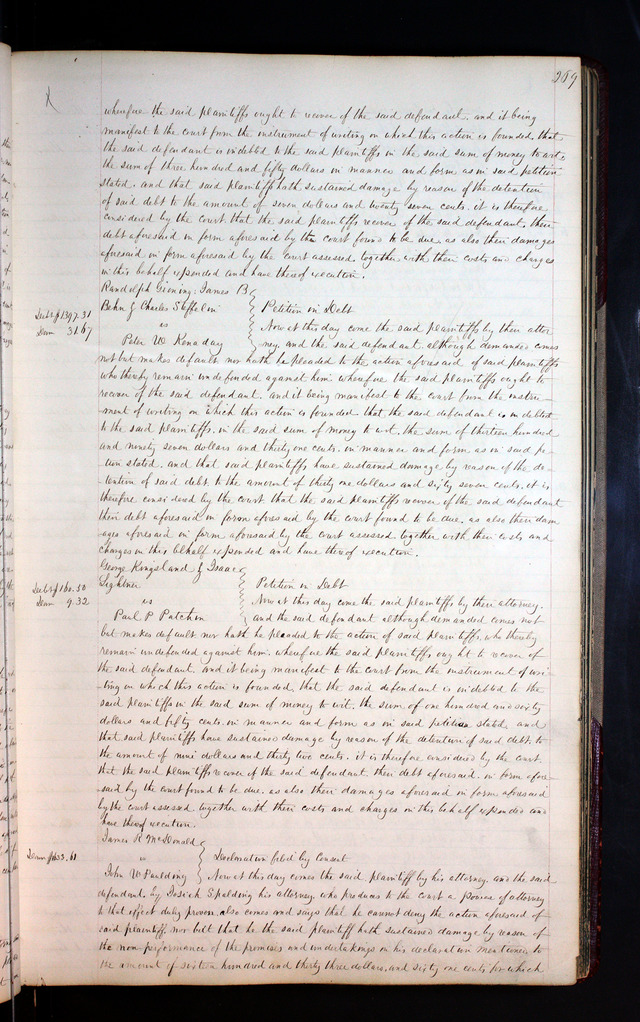 269
wherefore the said plaintiffs ought to recover of the said defendant. and it being
manifest to the court from the instrument of writing on which this action is founded. that
the said defendant is indebted to the said plaintiffs in the said sum of money to wit,
the sum of three hundred and fifty dollars in manner and form as in said petition
stated. and that said plaintiffs hath sustained damage by reason of the detention
of said debt to the amount of seven dollars and twenty seven cents. it is therefore
considered by the court that the said plaintiffs recover of the said defendant, their
debt aforesaid in form aforesaid by the court found to be due. as also their damages
aforesaid in form aforesaid by the court assessed together with their costs and charges
in this behalf expended and have thereof execution.
Randolph James B
Behn & Charles
Debt $1397.31
Dam 31.67
Petition in Debt
vs
Peter W Kenaday
Now at this day come the said plaintiffs by their attor
ney. and the said defendant. although demanded comes
not but makes default nor hath he pleaded to the action aforesaid of said plaintiffs
who thereby remain undefended against him wherefore the said plaintiffs ought to
recover of the said defendant. and it being manifest to the court from the instru-
ment of writing on which this action is founded that the said defendant is indebted
to the said plaintiffs. in the said sum of money to wit. the sum of thirteen hundred
and ninety seven dollars and thirty one cents. in manner and form as in said pe-
tion stated. and that said plaintiffs have sustained damage by reason of the de-
tention of said debt. to the amount of thirty one dollars and sixty seven cents. it is
therefore considered by the court that the said plaintiffs recover of the said defendant
their debt aforesaid in form aforesaid by the court found to be due. as also their dam
ages aforesaid in form aforesaid by the court assessed together with their costs and
charges in this behalf expended and have thereof execution.
George Kingsland & Isaac
Lightner
Debt $160.50
Dam 9.32
Petition in Debt
vs
Paul P Patchin
Now at this day come the said plaintiffs by their attorney.
and the said defendant although demanded comes not
but makes default nor hath he pleaded to the action of said plaintiffs, who thereby
remain undefended against him. wherefore the said plaintiffs ought to recover of
the said defendant. and it being manifest to the court from the instrument of wri-
ting on which this action is founded, that the said defendant is indebted to the
said plaintiffs in the said sum of money to wit, the sum of one hundred and sixty
dollars and fifty cents. in manner and form as in said petition stated and
that said plaintiffs have sustained damage by reason of the detention of said debt. to
the amount of nine dollars and thirty two cents. it is therefore considered by the court
that the said plaintiffs recover of the said defendant their debt aforesaid. in form afore
said by the court found to be due. as also their damages aforesaid in form aforesaid
by the court assessed together with their costs and charges in this behalf expended and
have thereof execution.
James R McDonald
Dam $1633.61
vs
Declaration filed by Consent
John W Paulding
Now at this day comes the said plaintiff by his attorney. and the said
defendant by Josiah Spalding his attorney. who produces to the court a power of attorney
to that effect duly proven. also comes and says that he cannot deny the action aforesaid of
said plaintiff. nor but that he the said plaintiff hath sustained damage by reason of
the non performance of the promises and undertakings in his declaration mentioned to
the amount of sixteen hundred and thirty three dollars, and sixty one cents for which